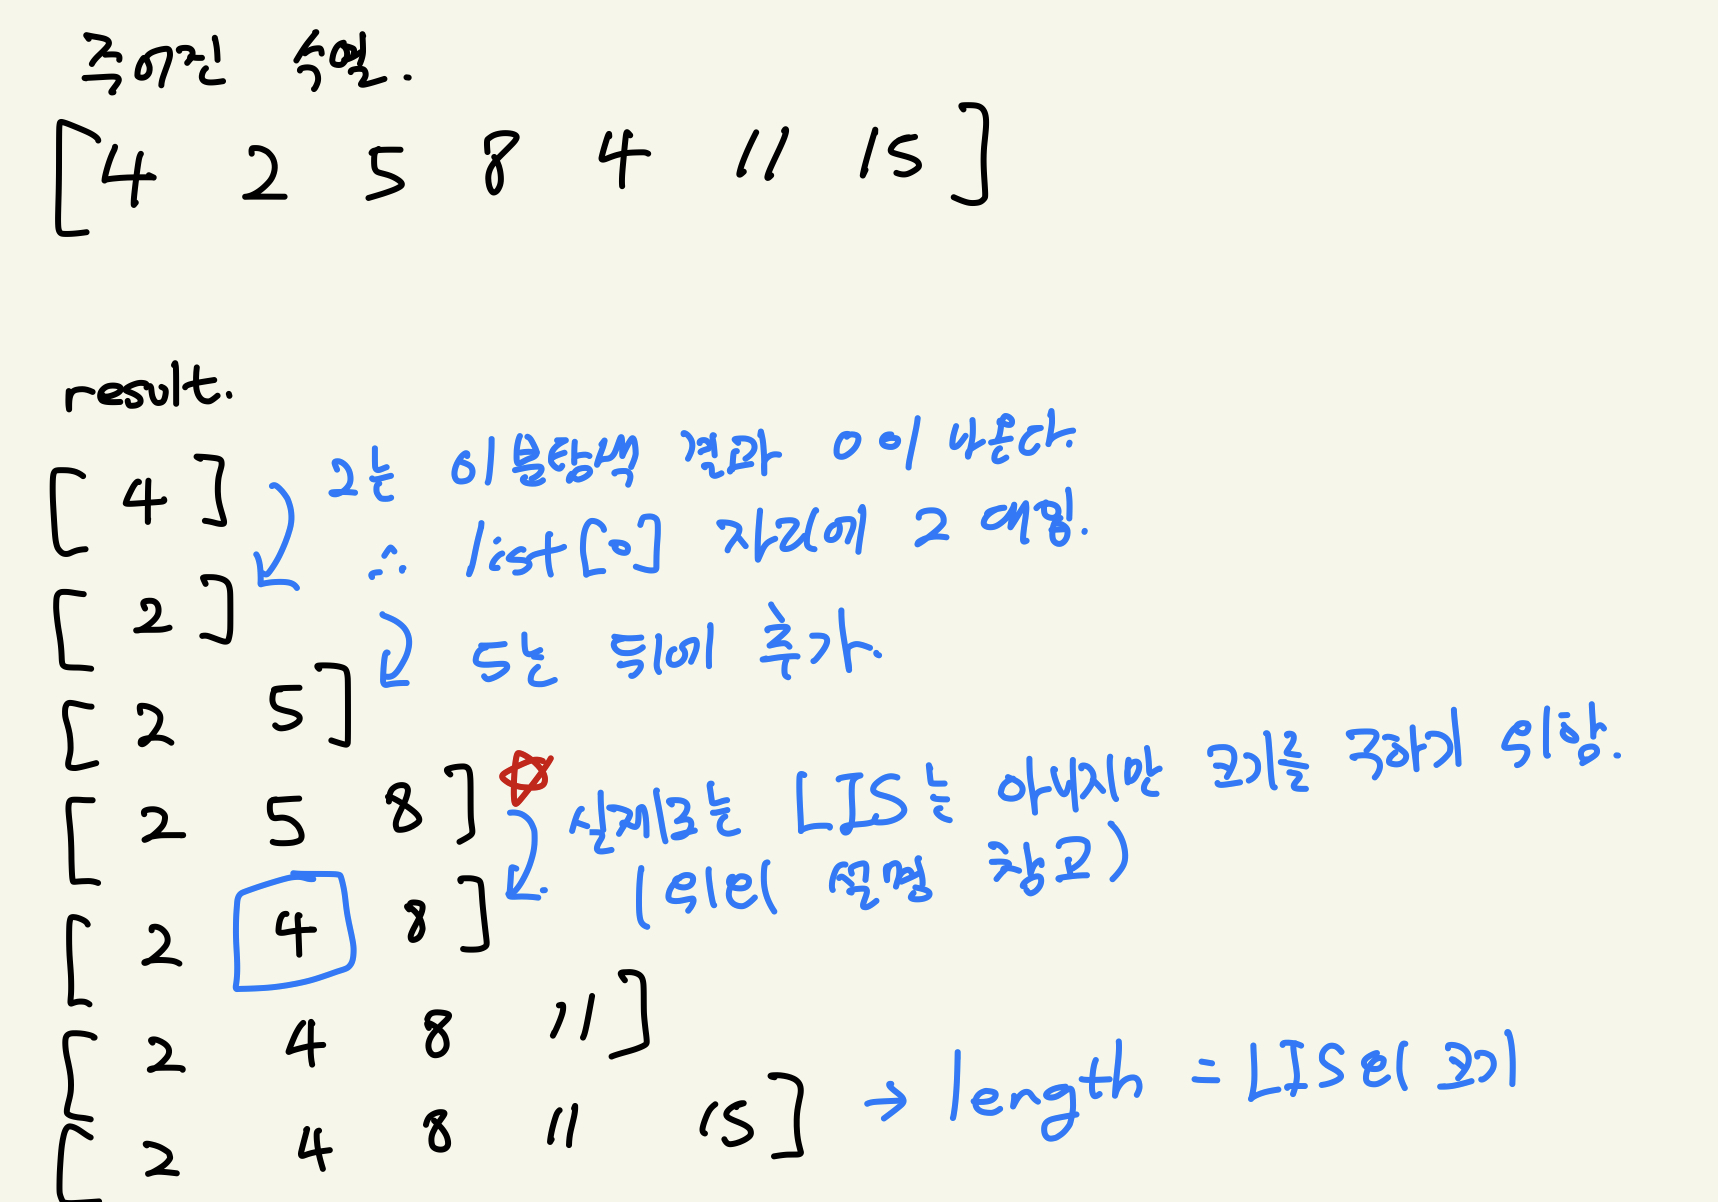 주어진 수열.
[ 4 2 5 8 4 11 15 ]
result.
[ 4 ] 2는 이분탐색 결과 0 이 나온다.
∴ list[0] 자리에 2 대입.
[ 2 ]
5는 뒤에 추가.
[ 2 5 ]
[ 2 5 8 ] 실제로는 LIS는 아니지만 크기를 구하기 위함.
(위의 설명 참고)
[ 2 4 8 ]
[ 2 4 8 11 ]
[ 2 4 8 11 15 ] → length = LIS의 크기